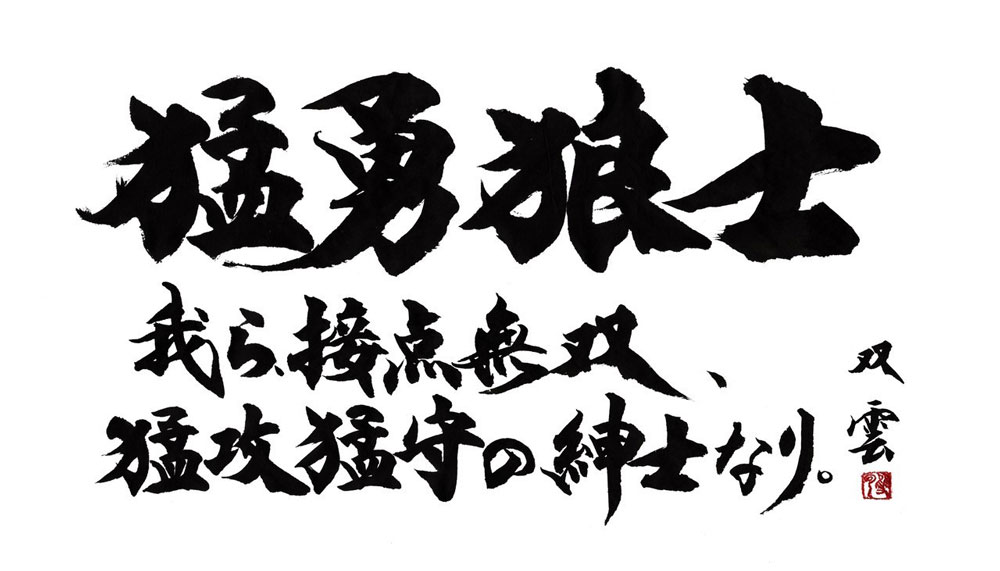 猛勇狼士
我ら、接点無双、
猛攻猛守の紳士なり。
双雲